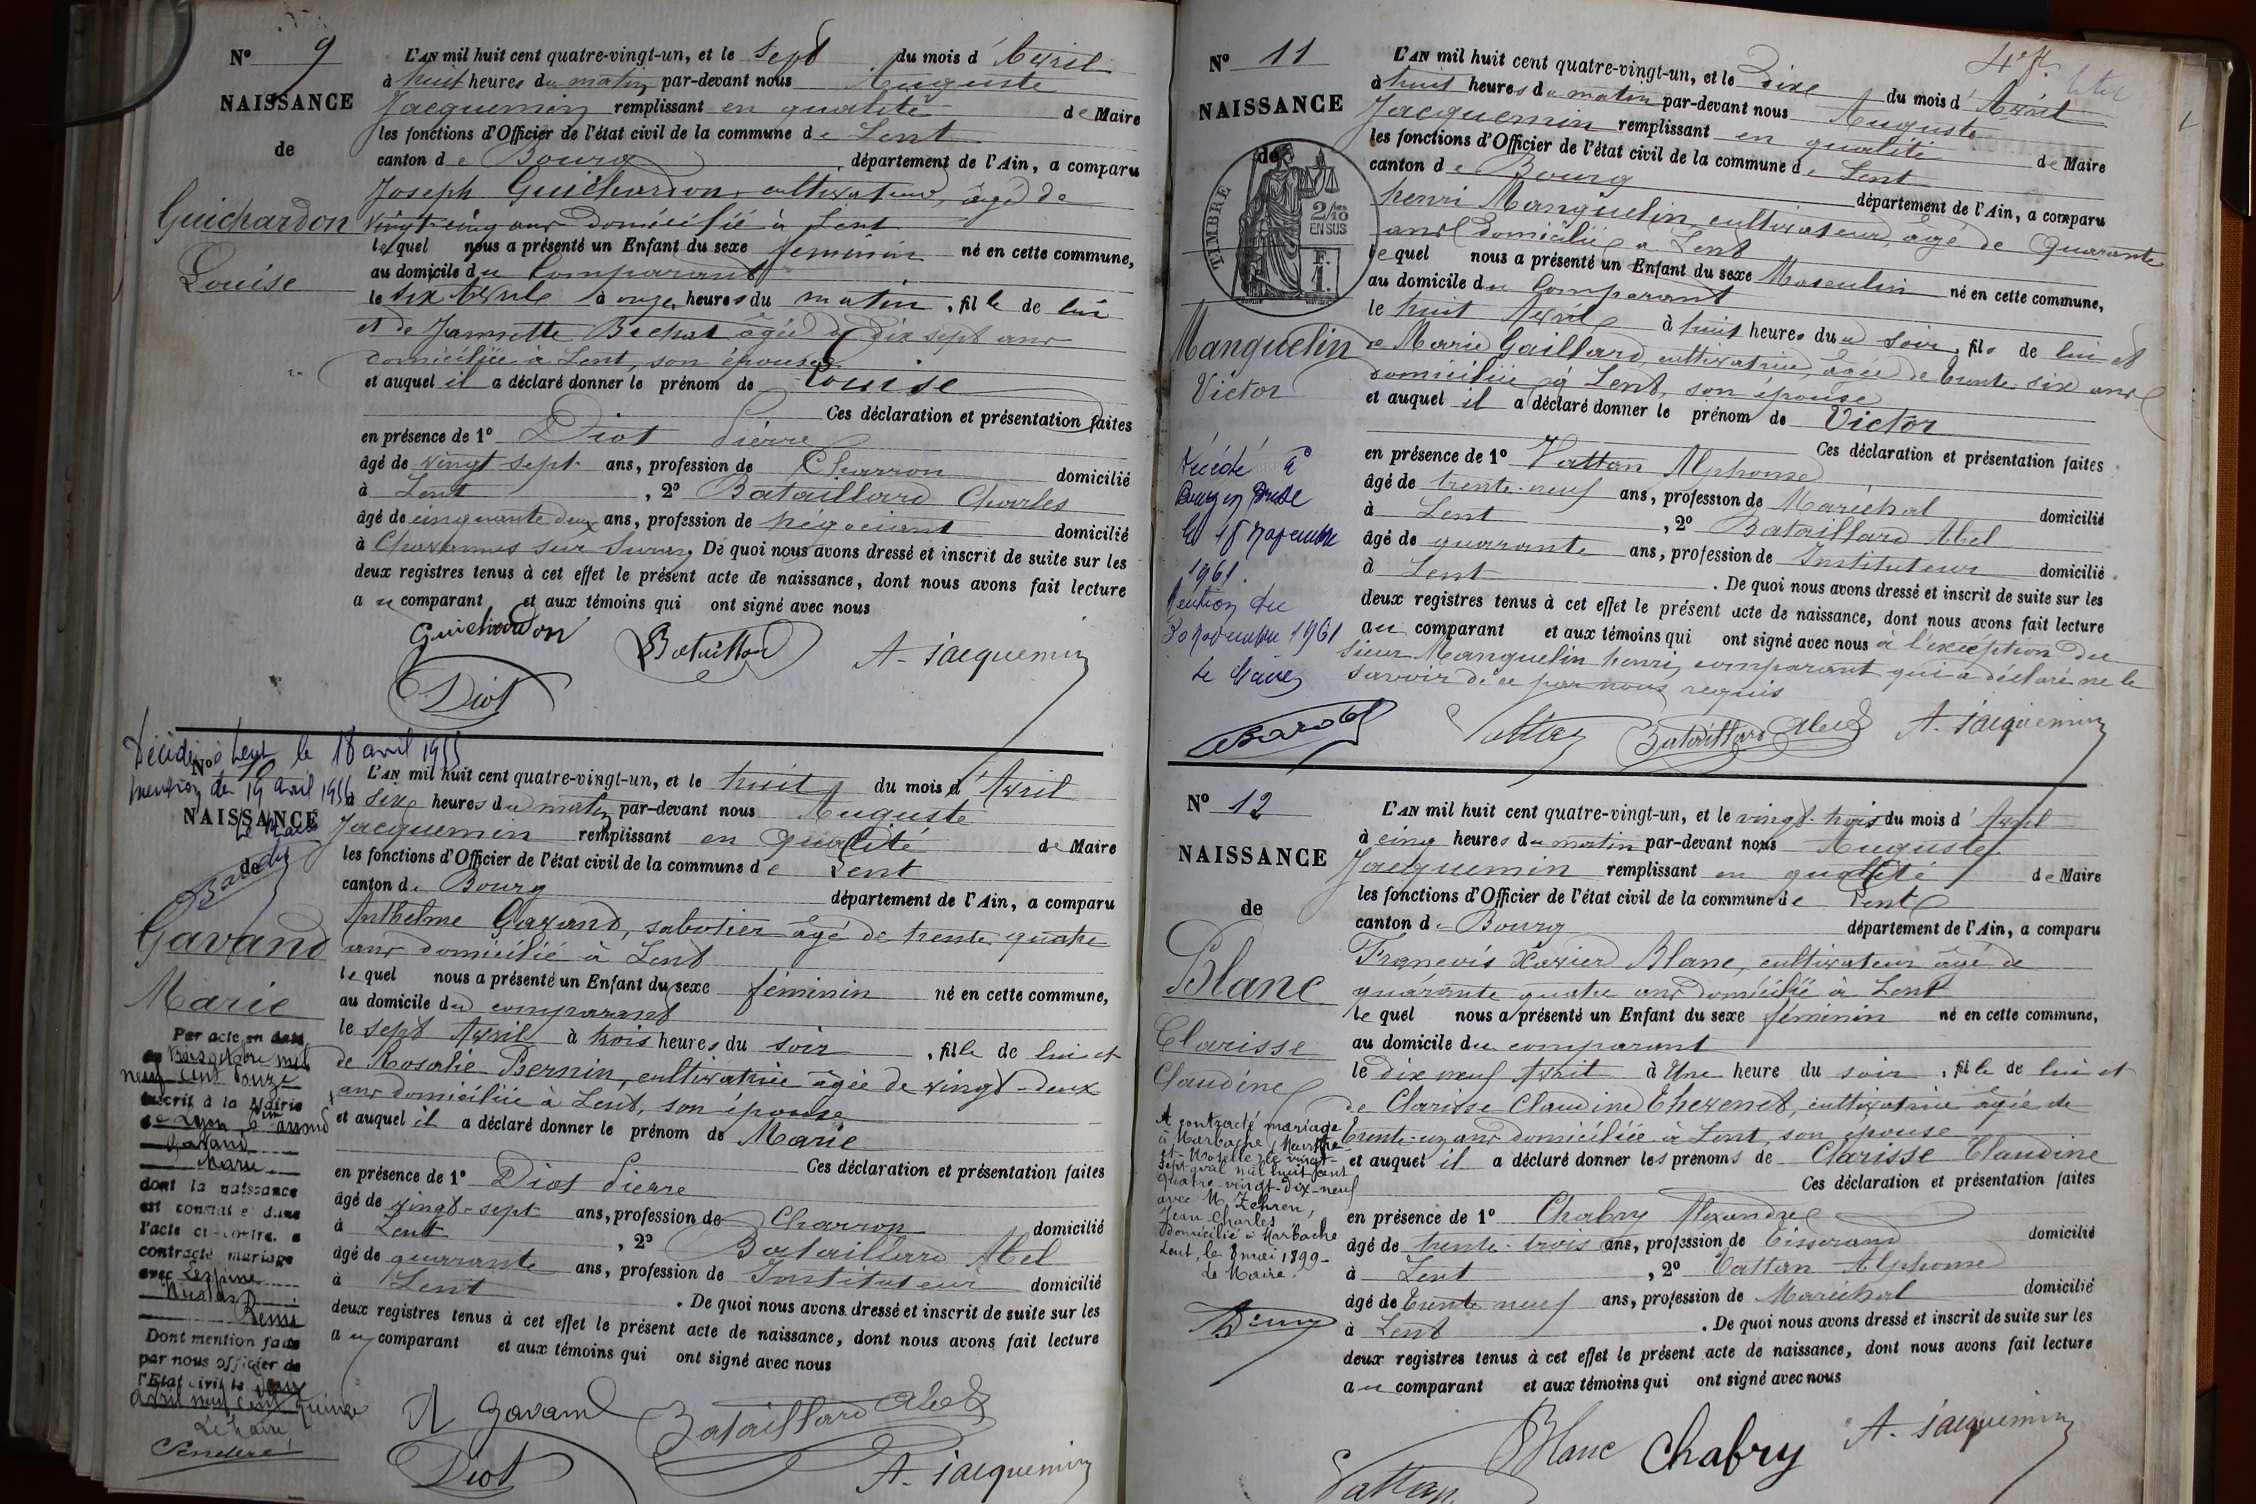 N° 9
NAISSANCE
de
Guichardon
Louise
L'AN mil huit cent quatre-vingt-un, et le sept du mois d'Avril
à huit heures du matin par-devant nous Auguste
Jacquemin remplissant en qualité de Maire
les fonctions d'Officier de l'état civil de la commune de Lent
canton de Bourg département de l'Ain, a comparu
Joseph Guichardon, cultivateur, âgé de
vingt-cinq ans domicilié à Lent
lequel nous a présenté un Enfant du sexe féminin né en cette commune,
au domicile du comparant
le six Avril à onze heures du matin, fille de lui
et de Jannette Bichat âgée de dix sept ans
domiciliée à Lent, son épouse
et auquel il a déclaré donner le prénom de Louise
Ces déclaration et présentation faites
en présence de 1° Diot Pierre
âgé de vingt sept ans, profession de Charron domicilié
à Lent, 2° Bataillard Charles
âgé de cinquante deux ans, profession de négociant domicilié
à Chavannes sur Suran, De quoi nous avons dressé et inscrit de suite sur les
deux registres tenus à cet effet le présent acte de naissance, dont nous avons fait lecture
au comparant et aux témoins qui ont signé avec nous
Guichardon Bataillard A. Jacquemin
Diot
Décédée à Lent le 18 avril 1955
N° 10
mention du 19 avril 1955
NAISSANCE
Le Maire
de
Gavand
Marie
Par acte en date
neuf cent douze
inscrit à la Mairie
de Lyon
Gavand
Marie
dont la naissance
est constatée dans
l'acte ci-contre, a
contracté mariage
avec Lespine
Dont mention faite
par nous officier de
l'Etat civil le deux
avril neuf cent quinze
Le Maire
L'AN mil huit cent quatre-vingt-un, et le huit du mois d'Avril
à six heures du matin par-devant nous Auguste
Jacquemin remplissant en qualité de Maire
les fonctions d'Officier de l'état civil de la commune de Lent
canton de Bourg département de l'Ain, a comparu
Anthelme Gavand, sabotier âgé de trente quatre
ans domicilié à Lent
lequel nous a présenté un Enfant du sexe féminin né en cette commune,
au domicile du comparant
le sept Avril à trois heures du soir, fille de lui et
de Rosalie Pernin, cultivatrice âgée de vingt-deux
ans domiciliée à Lent, son épouse
et auquel il a déclaré donner le prénom de Marie
Ces déclaration et présentation faites
en présence de 1° Diot Pierre
âgé de vingt-sept ans, profession de Charron domicilié
à Lent, 2° Bataillard Abel
âgé de quarante ans, profession de Instituteur domicilié
à Lent. De quoi nous avons dressé et inscrit de suite sur les
deux registres tenus à cet effet le présent acte de naissance, dont nous avons fait lecture
au comparant et aux témoins qui ont signé avec nous
A Gavand Bataillard Abel
Diot A. Jacquemin
N° 11
NAISSANCE
de
TIMBRE
2/10
EN SUS
F.
1.
Manquelin
Victor
Décédé à
Bourg en Bresse
le 18 novembre
1961.
Mention du
30 novembre 1961
Le Maire
L'AN mil huit cent quatre-vingt-un, et le dix du mois d'Avril
à huit heures du matin par-devant nous Auguste
Jacquemin remplissant en qualité de Maire
les fonctions d'Officier de l'état civil de la commune de Lent
canton de Bourg département de l'Ain, a comparu
henri Manquelin, cultivateur, âgé de quarante
ans domicilié à Lent
lequel nous a présenté un Enfant du sexe Masculin né en cette commune,
au domicile du comparant
le huit Avril à huit heures du soir, fils de lui et
de Marie Gaillard, cultivatrice, âgée de trente-six ans
domiciliée à Lent, son épouse
et auquel il a déclaré donner le prénom de Victor
Ces déclaration et présentation faites
en présence de 1° Vattan Alphonse
âgé de trente-neuf ans, profession de Maréchal domicilié
à Lent, 2° Bataillard Abel
âgé de quarante ans, profession de Instituteur domicilié
à Lent. De quoi nous avons dressé et inscrit de suite sur les
deux registres tenus à cet effet le présent acte de naissance, dont nous avons fait lecture
au comparant et aux témoins qui ont signé avec nous à l'exception du
sieur Manquelin henri, comparant qui a déclaré ne le
savoir de ce par nous requis
Vattan Bataillard Abel A. Jacquemin
N° 12
NAISSANCE
de
Blanc
Clarisse
Claudine
A contracté mariage
à Marbache (Meurthe-
et-Moselle) le vingt-
sept avril mil huit cent
quatre-vingt-dix-neuf
avec M. Zehren,
Jean Charles
Domicilié à Marbache
Lent, le 8 mai 1899-
Le Maire.
L'AN mil huit cent quatre-vingt-un, et le vingt-trois du mois d'Avril
à cinq heures du matin par-devant nous Auguste
Jacquemin remplissant en qualité de Maire
les fonctions d'Officier de l'état civil de la commune de Lent
canton de Bourg département de l'Ain, a comparu
François Xavier Blanc, cultivateur âgé de
quarante quatre ans domicilié à Lent
lequel nous a présenté un Enfant du sexe féminin né en cette commune,
au domicile du comparant
le dix neuf Avril à Une heure du soir, fille de lui et
de Clarisse Claudine Thevenet, cultivatrice âgée de
trente-un ans domiciliée à Lent, son épouse
et auquel il a déclaré donner les prénoms de Clarisse Claudine
Ces déclaration et présentation faites
en présence de 1° Chabry Alexandre
âgé de trente-trois ans, profession de Tisserand domicilié
à Lent, 2° Vattan Alphonse
âgé de trente neuf ans, profession de Maréchal domicilié
à Lent. De quoi nous avons dressé et inscrit de suite sur les
deux registres tenus à cet effet le présent acte de naissance, dont nous avons fait lecture
au comparant et aux témoins qui ont signé avec nous
Blanc Chabry A. Jacquemin
Vattan